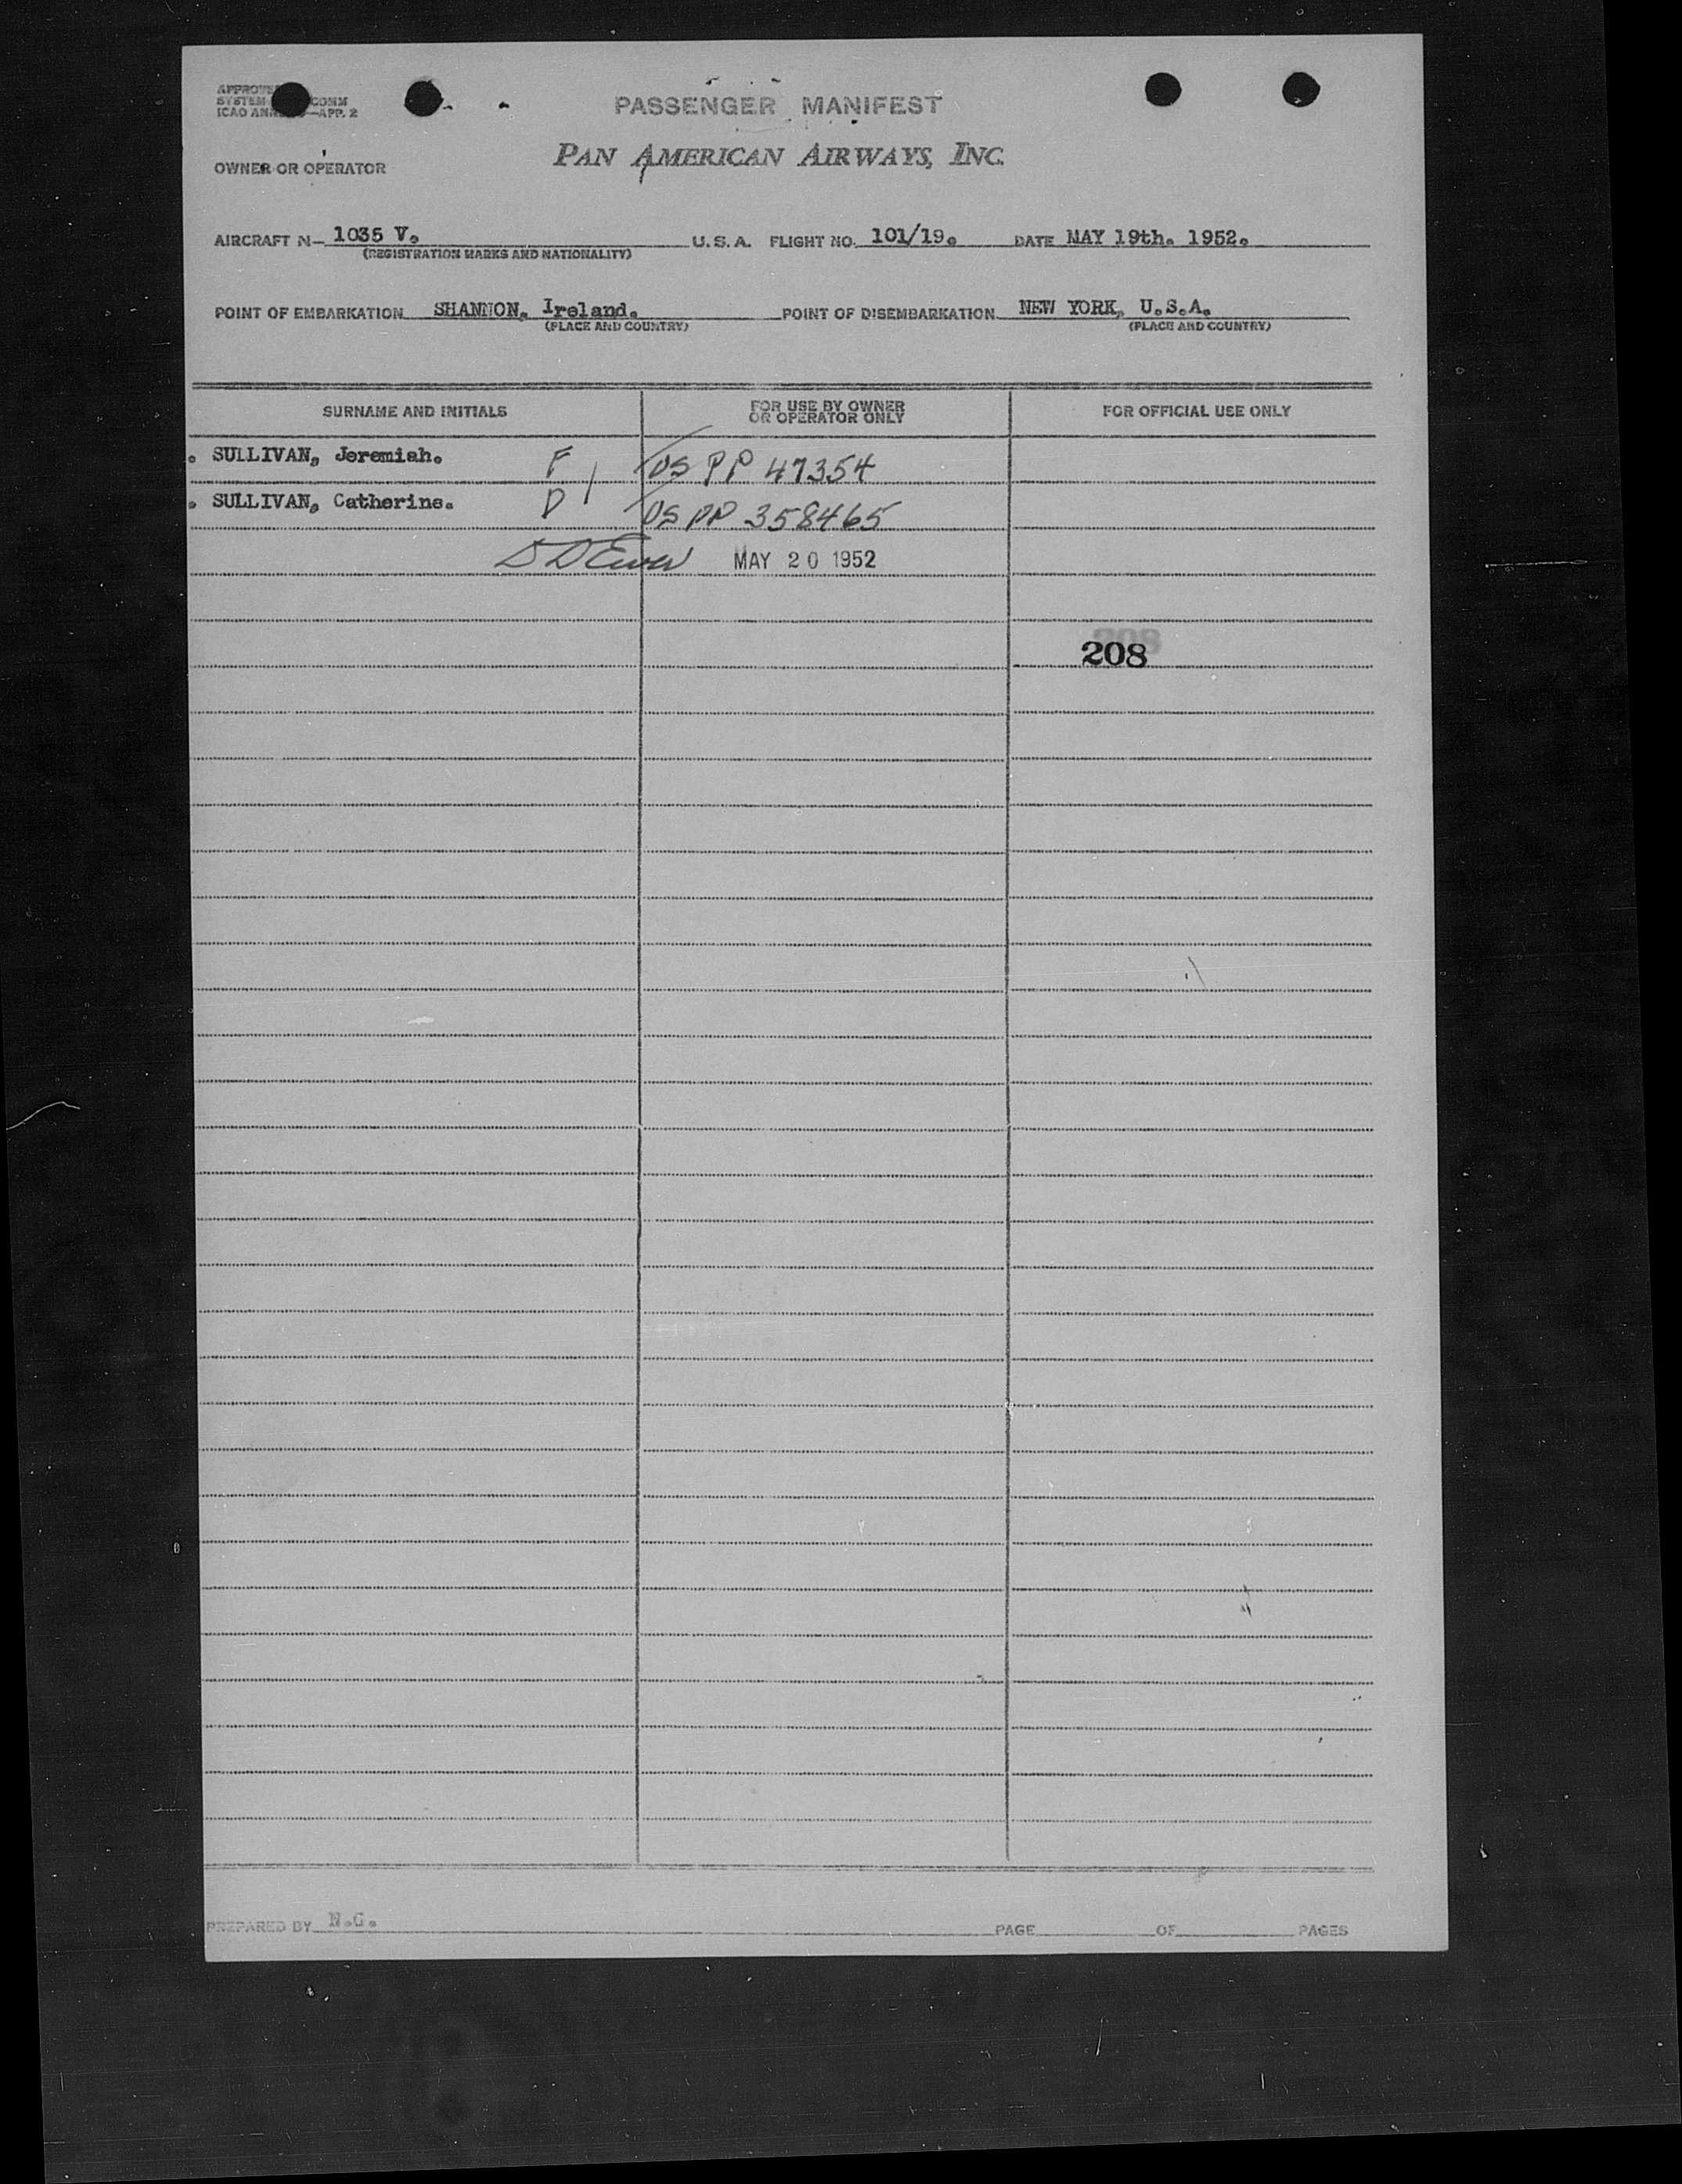 PASSENGER MANIFEST
ICAO APP. 2
OWNER OR OPERATOR
PAN AMERICAN AIRWAYS, INC.
AIRCRAFT N- 1035 V. U.S.A. FLIGHT NO. 101/19. DATE MAY 19th. 1952.
(REGISTRATION MARKS AND NATIONALITY)
POINT OF EMBARKATION SHANNON, Ireland. POINT OF DISEMBARKATION NEW YORK, U.S.A.
(PLACE AND COUNTRY) (PLACE AND COUNTRY)
SURNAME AND INITIALS FOR USE BY OWNER OR OPERATOR ONLY FOR OFFICIAL USE ONLY
. SULLIVAN, Jeremiah. F US PP 47354
. SULLIVAN, Catherine. D US PP 358465
MAY 20 1952
208
PREPARED BY N.G. PAGE OF PAGES